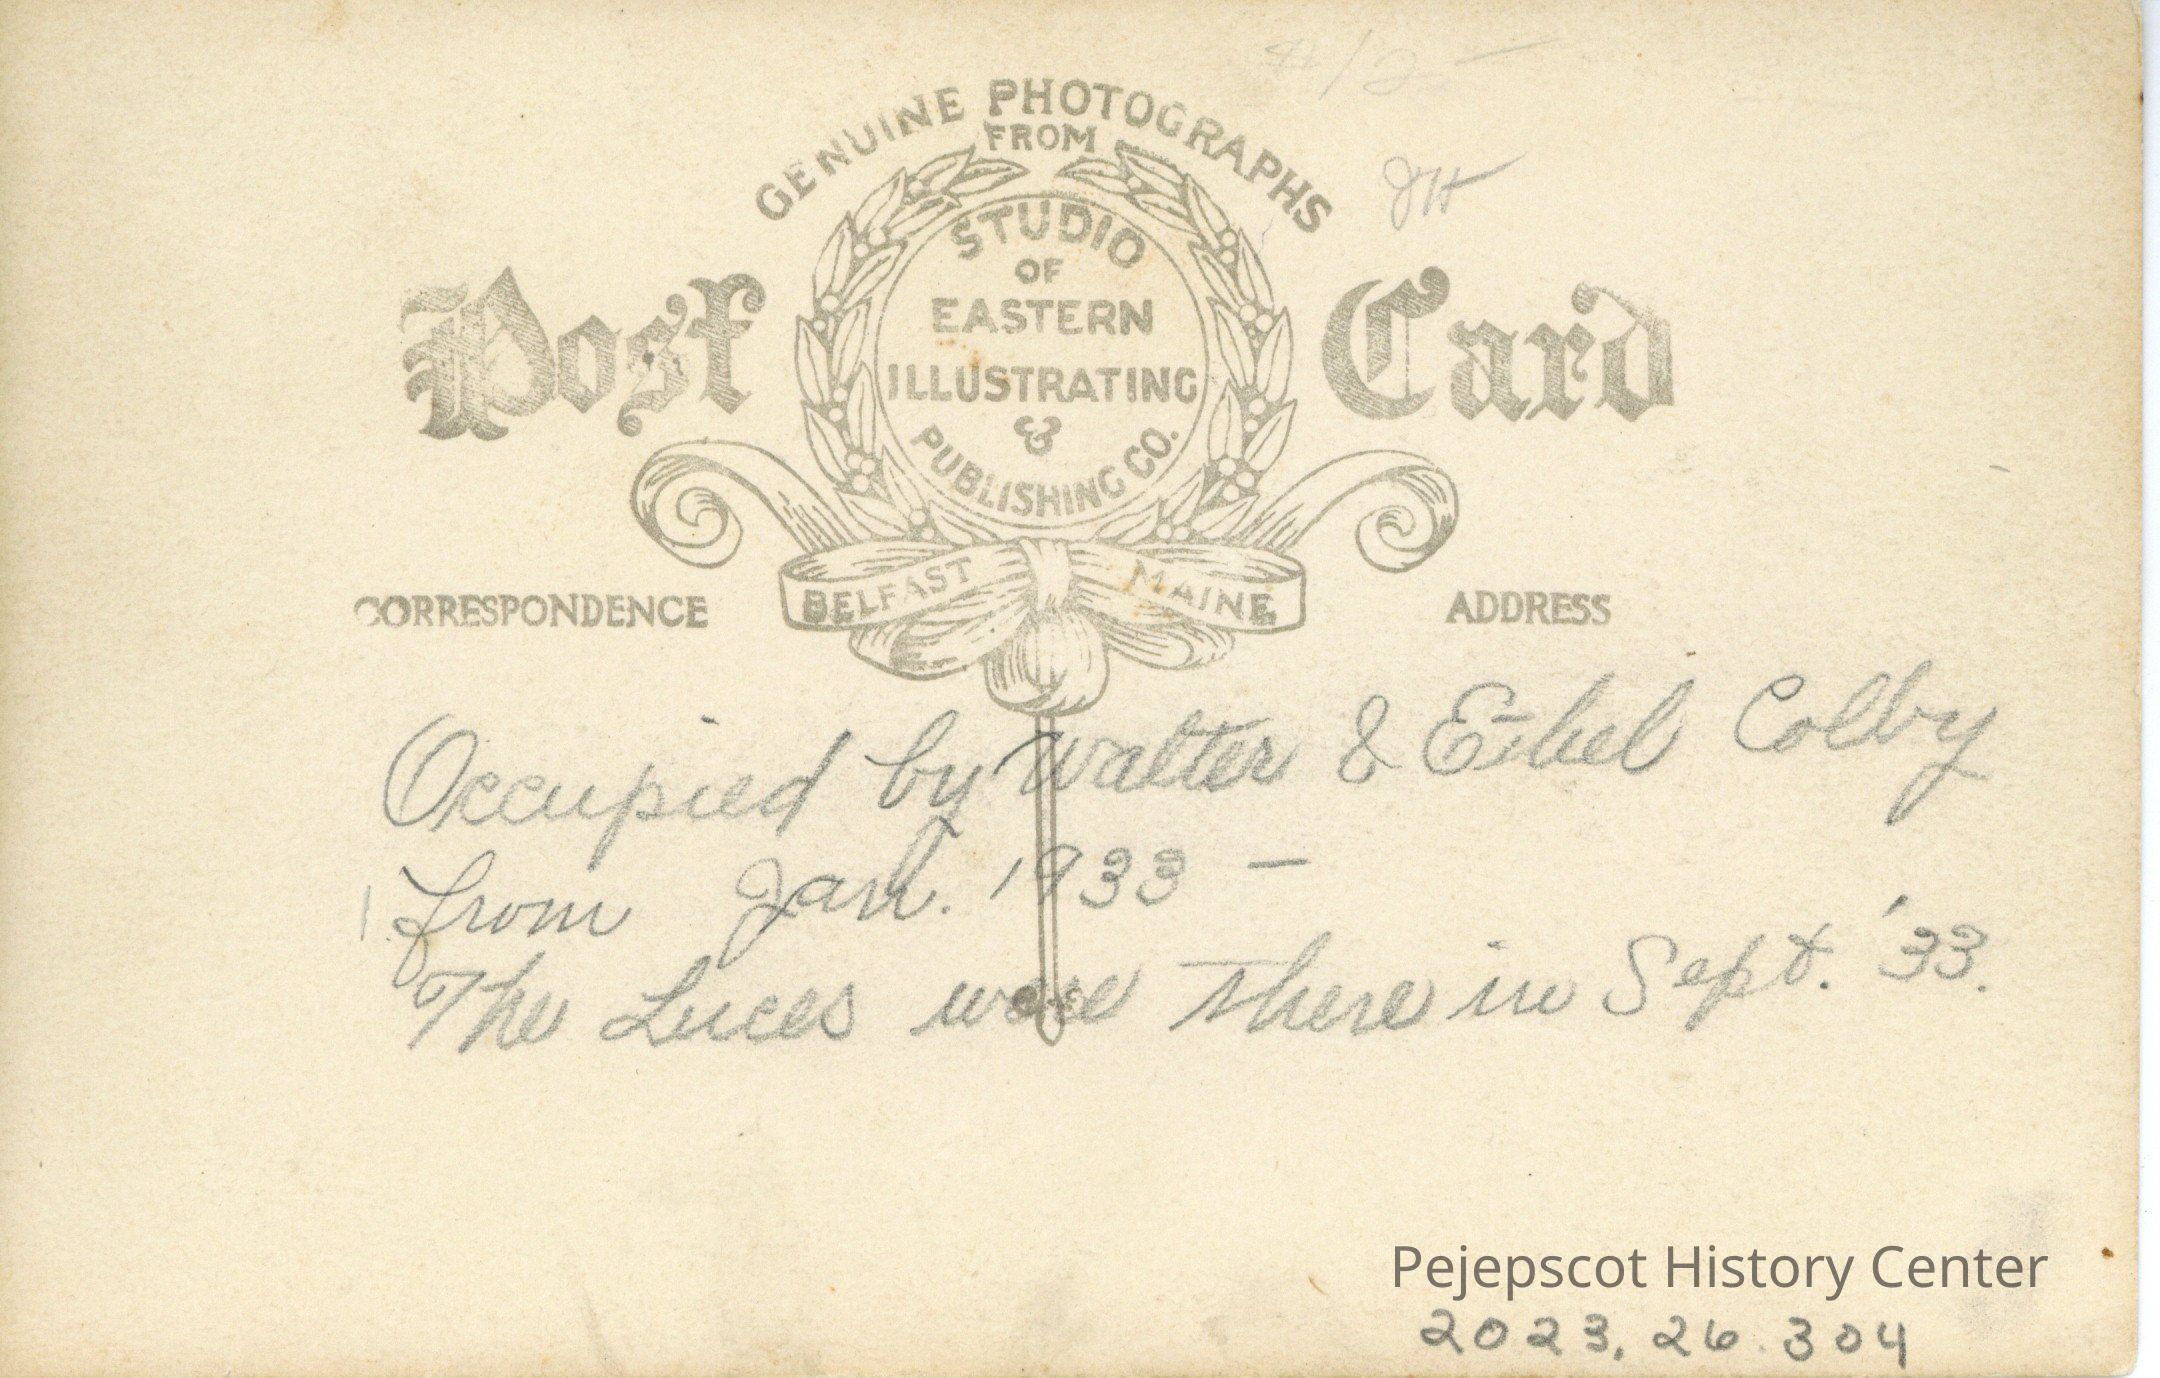 GENUINE PHOTOGRAPHS
FROM
STUDIO
OF
EASTERN
ILLUSTRATING
&
PUBLISHING CO.
Post Card
BELFAST MAINE
CORRESPONDENCE
ADDRESS
Occupied by Walter & Ethel Colby
from Jan. 1933 –
The Luces were there in Sept. '33.
Pejepscot History Center
2023.26.304